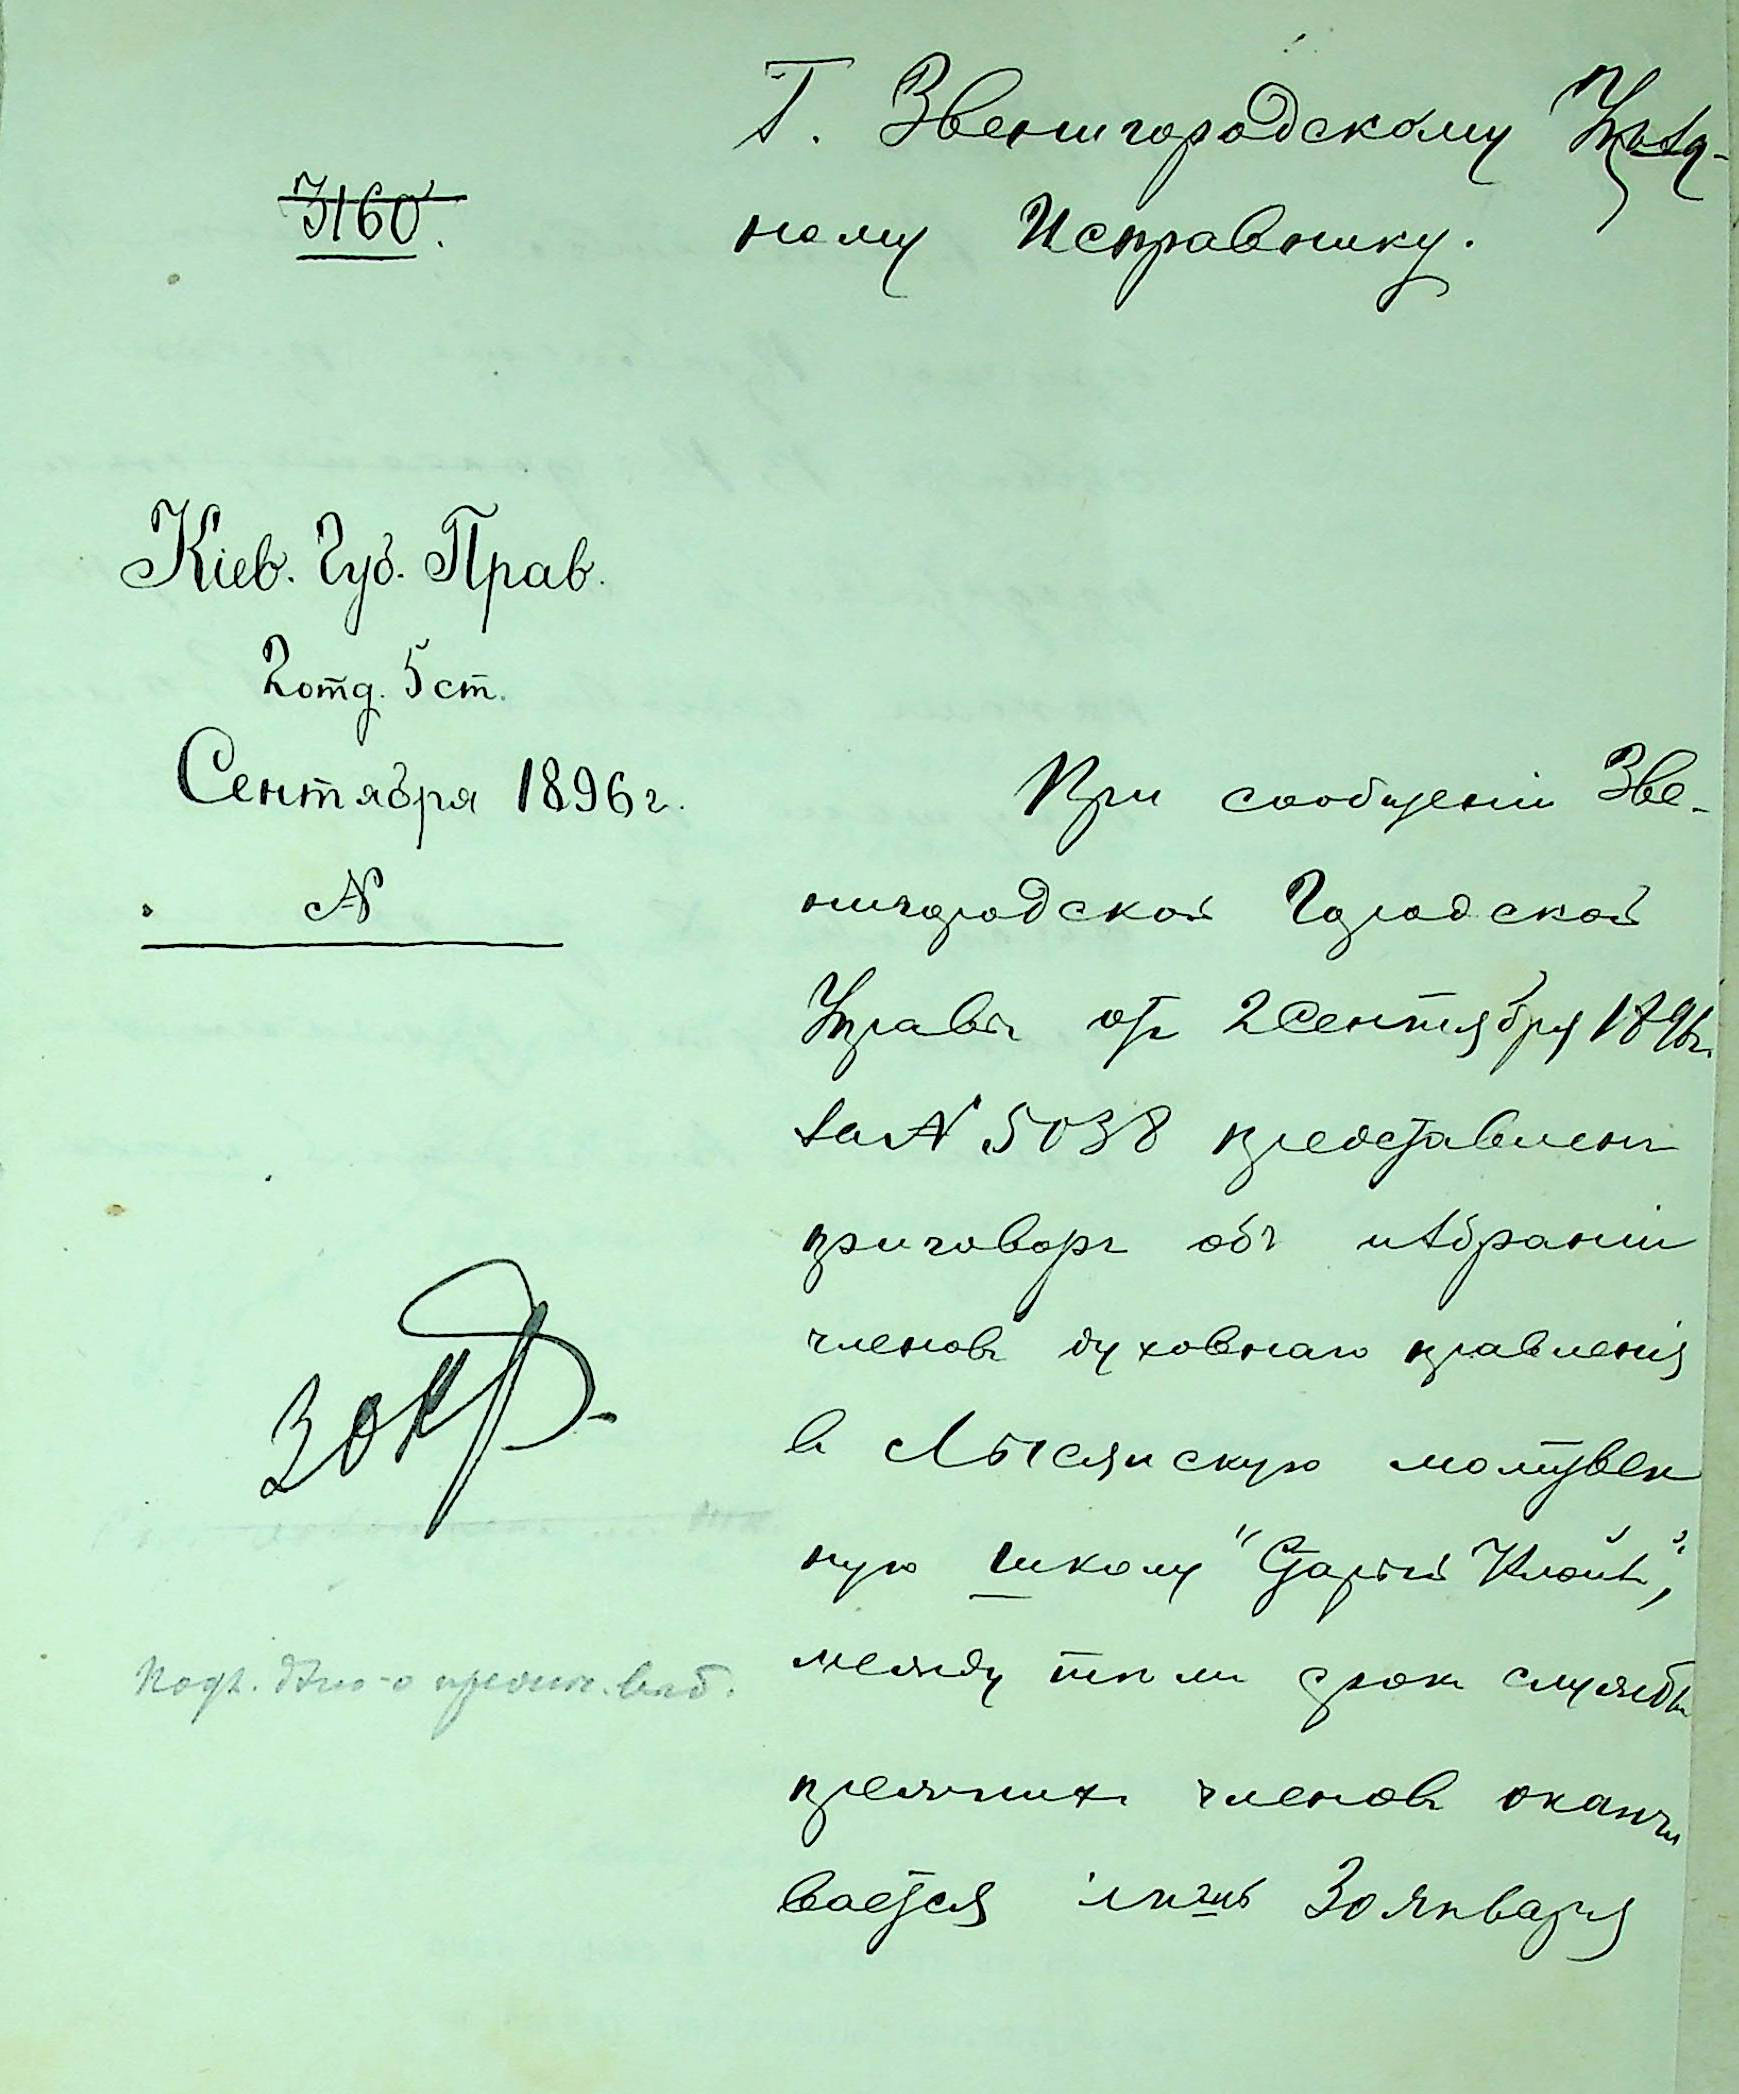 Г. Звенигородскому Уѣзд-
ному Исправнику.
3160.
Кіев. Губ. Прав.
2 отд. 5 ст.
Сентября 1896 г.
№
При сообщеніи Зве-
нигородской Городской
Управы отъ 2 Сентября 1896 г.
за № 5038 представленъ
приговоръ объ избраніи
членовъ духовнаго правленія
въ Лысянскую молитвен
ную школу "Старый Клойзъ",
между тѣмъ срокъ службы
прежнихъ членовъ оканчи
вается лишь 30 января
30 к